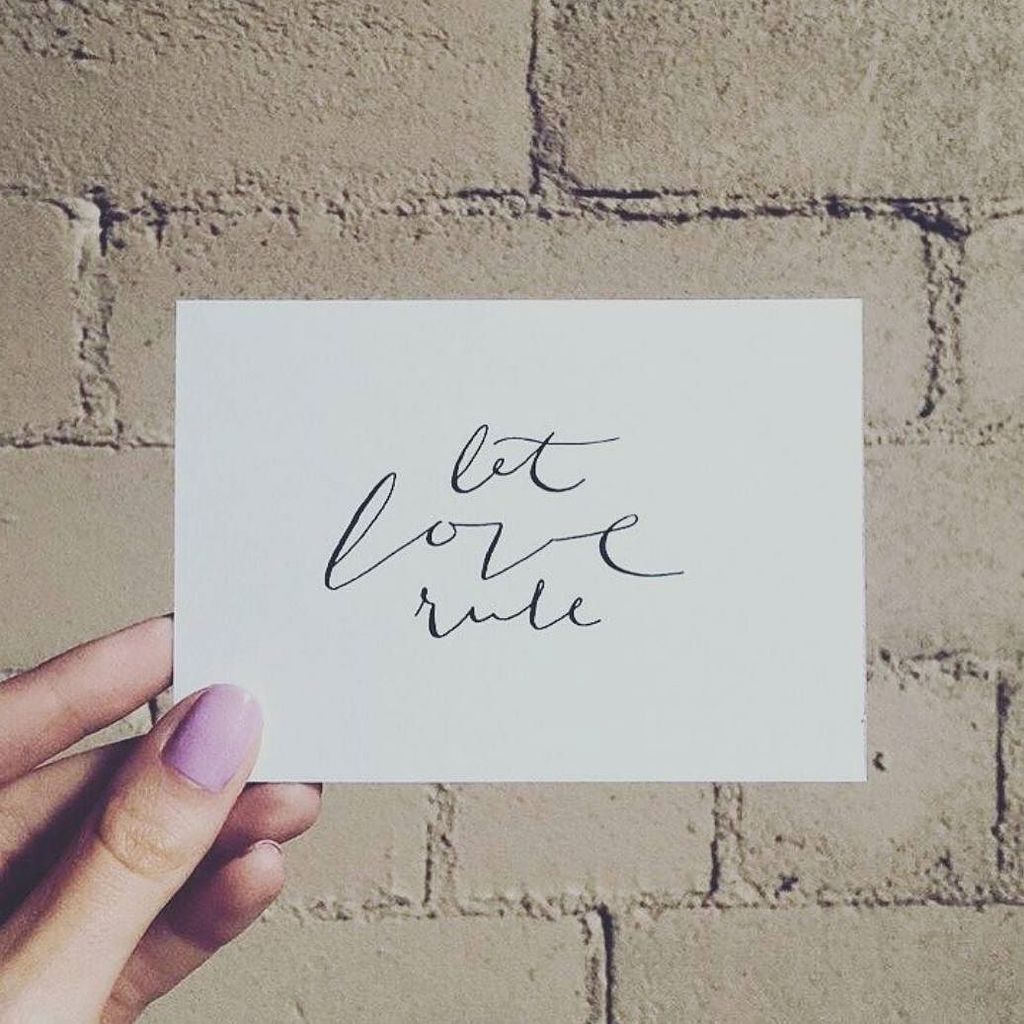 let
love
rule